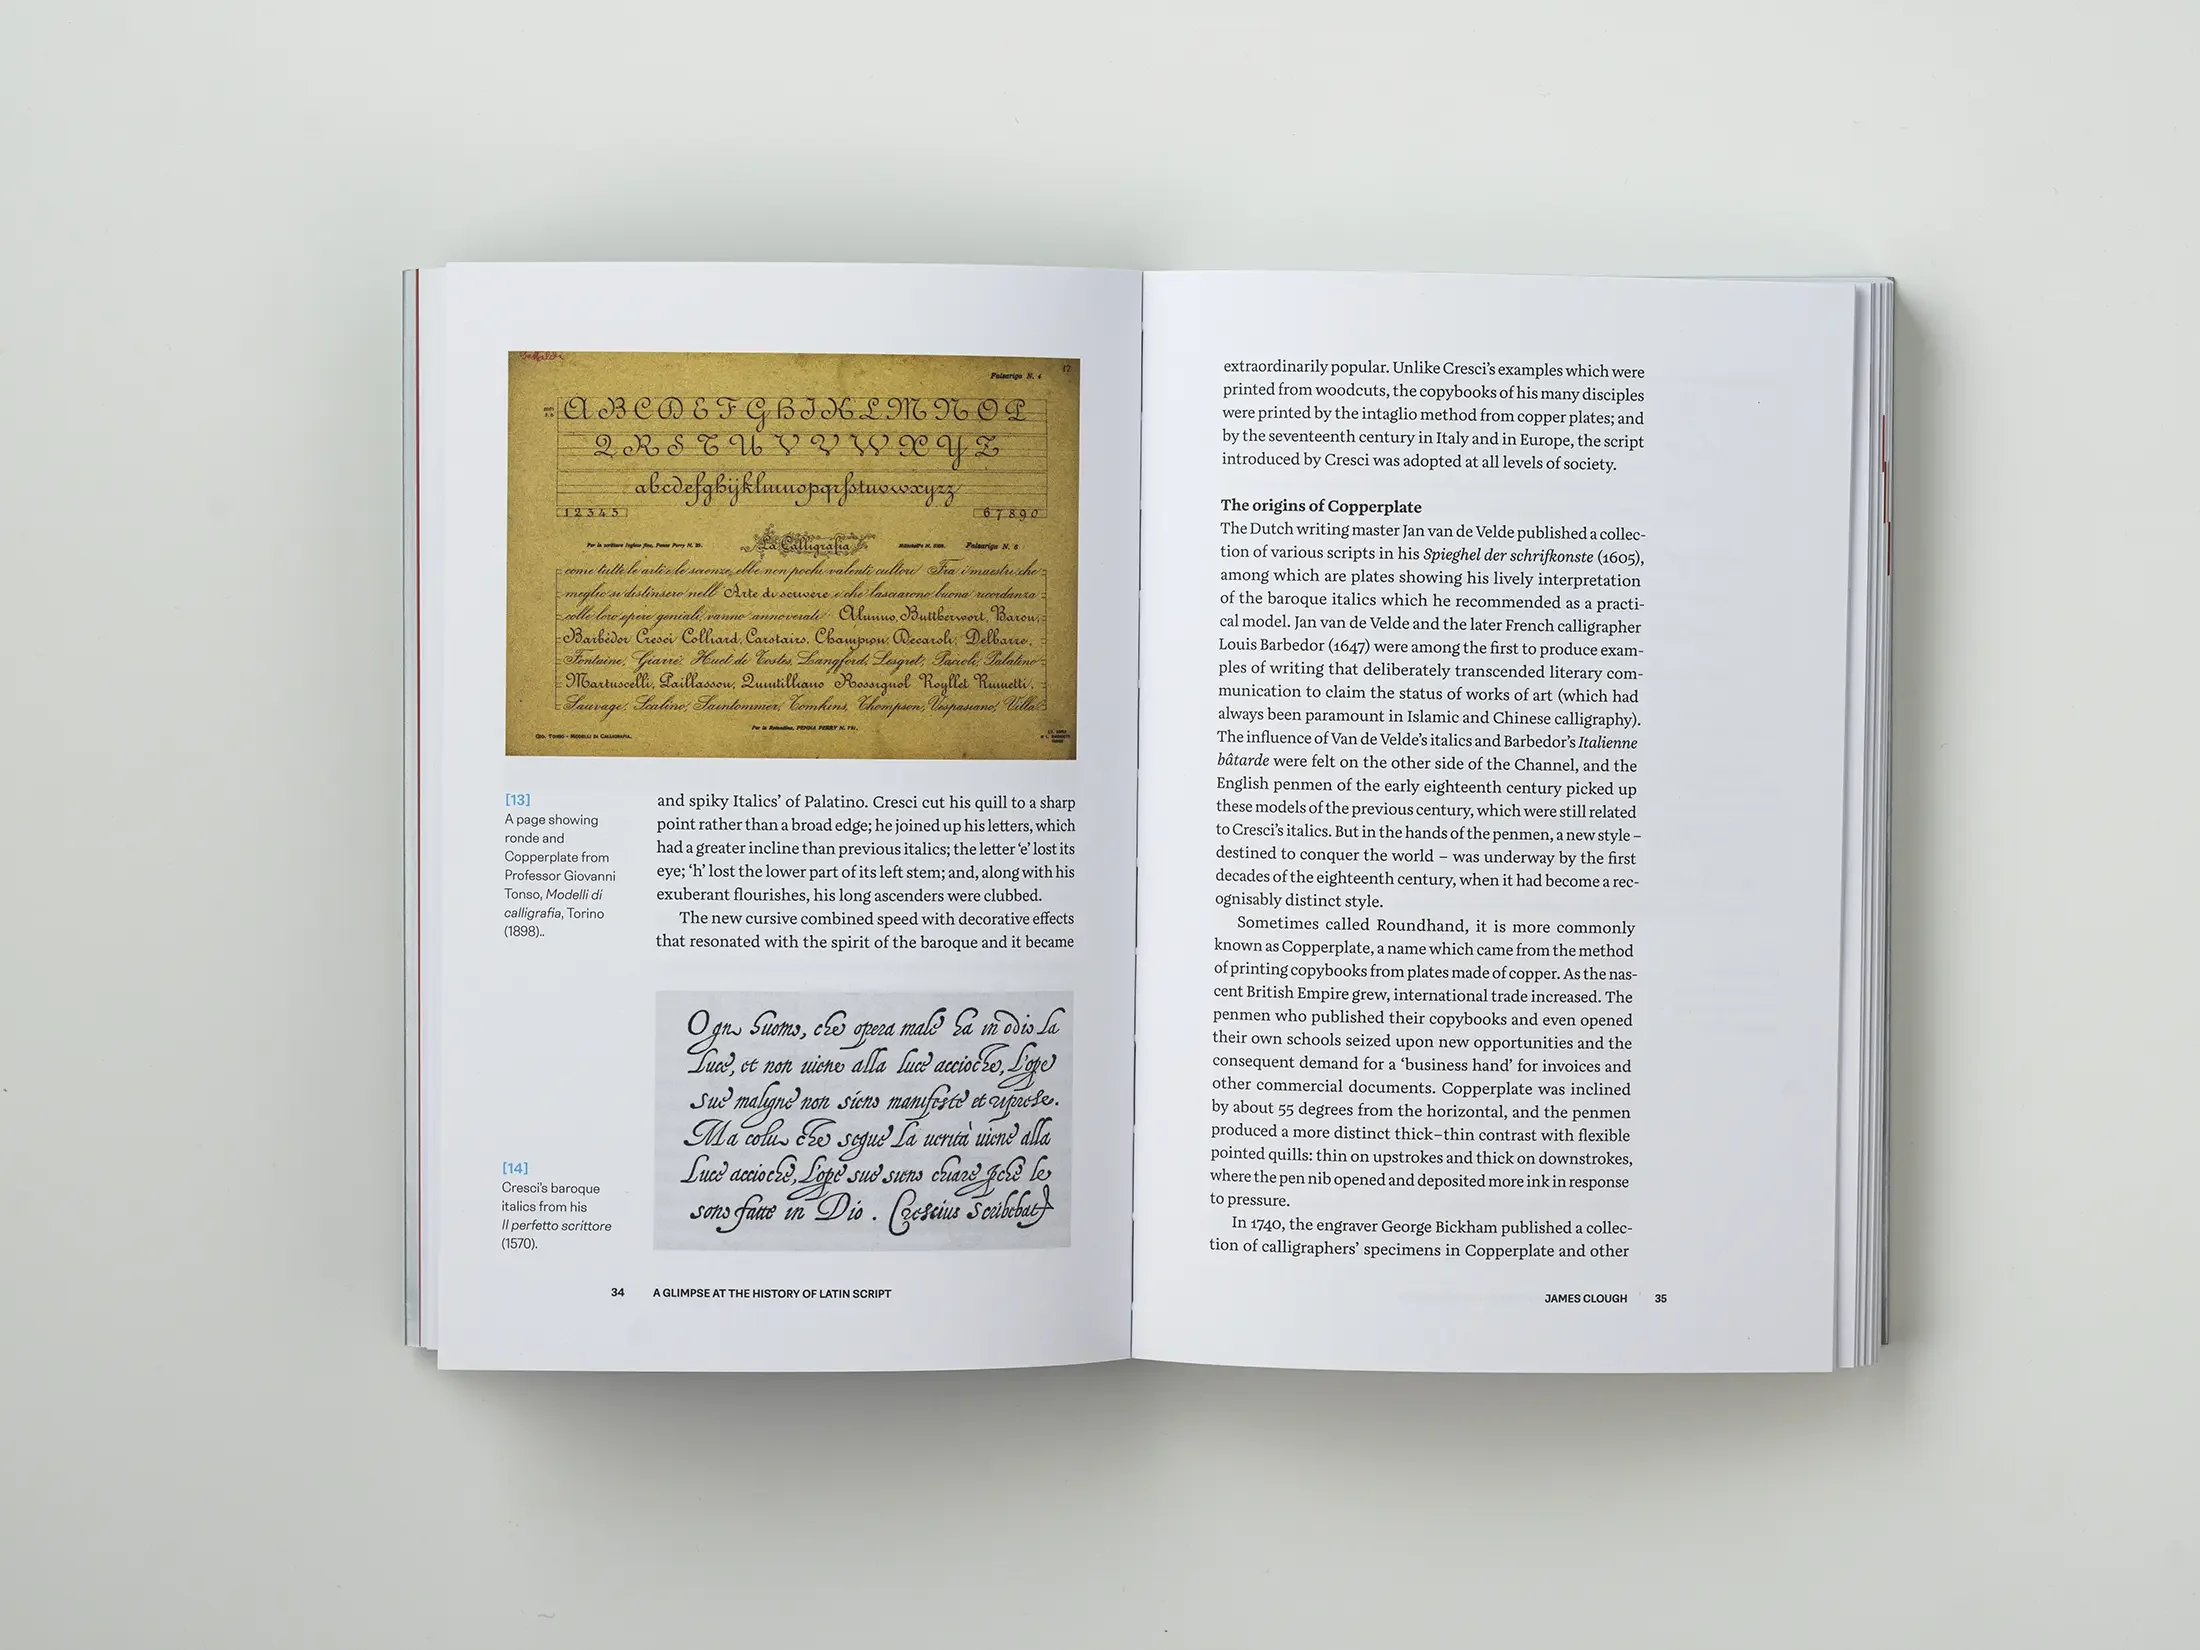 17
Falsariga N. 4
A B C D E F G H I K L M N O P
Q R S T U V V W X Y Z
abcdefghijklmnopqrſstuvwxyzz
1 2 3 4 5
6 7 8 9 0
Per la scrittura Inglese fine, Penna Perry N. 25.
La Calligrafia
Falsariga N. 6
come tutte le arti e le scienze, ebbe non pochi valenti cultori. Fra i maestri che
meglio si distinsero nell' Arte di scrivere e che lasciarono buona ricordanza
colle loro opere geniali, vanno annoverati: Alunno, Buttherwort, Baron,
Barbédor Cresci Colhard, Carstairs, Champion, Decaroli, Delbarre,
Fontaine, Giarrè, Huet de Tostes, Langford, Lesgret, Pacioli, Palatino
Martuscelli, Paillasson, Quintilliano Rossignol Royllet Rumetti,
Sauvage, Scalino, Saintommer, Tomkins, Thompson, Vespasiano, Villa
Per la Rotondina, PENNA PERRY N. 791.
GIO. TONSO - MODELLI DI CALLIGRAFIA.
[13]
A page showing
ronde and
Copperplate from
Professor Giovanni
Tonso, Modelli di
calligrafia, Torino
(1898)..
and spiky Italics’ of Palatino. Cresci cut his quill to a sharp
point rather than a broad edge; he joined up his letters, which
had a greater incline than previous italics; the letter ‘e’ lost its
eye; ‘h’ lost the lower part of its left stem; and, along with his
exuberant flourishes, his long ascenders were clubbed.
The new cursive combined speed with decorative effects
that resonated with the spirit of the baroque and it became
Ogni huomo, che opera male ha in odio la
luce, et non uiene alla luce accioche, l'ope
sue maligne non sieno manifeste et riprese.
Ma colui che segue la uerità uiene alla
luce accioche, l'ope sue sieno chiare pche le
sono fatte in Dio. Crescius Scribebat
[14]
Cresci’s baroque
italics from his
Il perfetto scrittore
(1570).
34 A GLIMPSE AT THE HISTORY OF LATIN SCRIPT
extraordinarily popular. Unlike Cresci’s examples which were
printed from woodcuts, the copybooks of his many disciples
were printed by the intaglio method from copper plates; and
by the seventeenth century in Italy and in Europe, the script
introduced by Cresci was adopted at all levels of society.
The origins of Copperplate
The Dutch writing master Jan van de Velde published a collec-
tion of various scripts in his Spieghel der schrifkonste (1605),
among which are plates showing his lively interpretation
of the baroque italics which he recommended as a practi-
cal model. Jan van de Velde and the later French calligrapher
Louis Barbedor (1647) were among the first to produce exam-
ples of writing that deliberately transcended literary com-
munication to claim the status of works of art (which had
always been paramount in Islamic and Chinese calligraphy).
The influence of Van de Velde’s italics and Barbedor’s Italienne
bâtarde were felt on the other side of the Channel, and the
English penmen of the early eighteenth century picked up
these models of the previous century, which were still related
to Cresci’s italics. But in the hands of the penmen, a new style –
destined to conquer the world – was underway by the first
decades of the eighteenth century, when it had become a rec-
ognisably distinct style.
Sometimes called Roundhand, it is more commonly
known as Copperplate, a name which came from the method
of printing copybooks from plates made of copper. As the nas-
cent British Empire grew, international trade increased. The
penmen who published their copybooks and even opened
their own schools seized upon new opportunities and the
consequent demand for a ‘business hand’ for invoices and
other commercial documents. Copperplate was inclined
by about 55 degrees from the horizontal, and the penmen
produced a more distinct thick–thin contrast with flexible
pointed quills: thin on upstrokes and thick on downstrokes,
where the pen nib opened and deposited more ink in response
to pressure.
In 1740, the engraver George Bickham published a collec-
tion of calligraphers’ specimens in Copperplate and other
JAMES CLOUGH 35